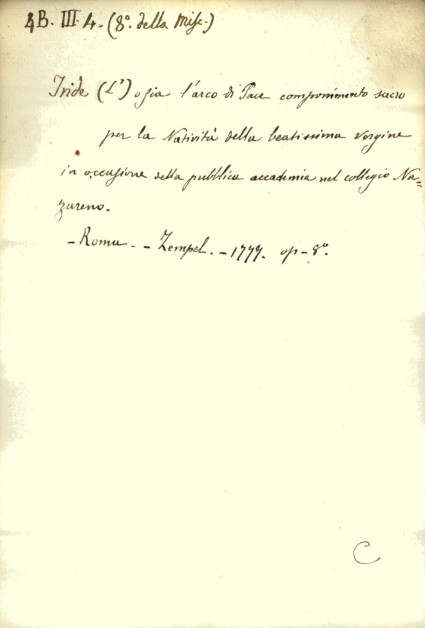 4B. III. 4. (8º. della Misc.)
Iride (L') o sia l'arco di Pace componimento sacro
per la Natività della beatissima vergine
in occasione della pubblica accademia nel collegio Na=
zareno.
- Roma. - Zempel. - 1777. op - 8º.
C